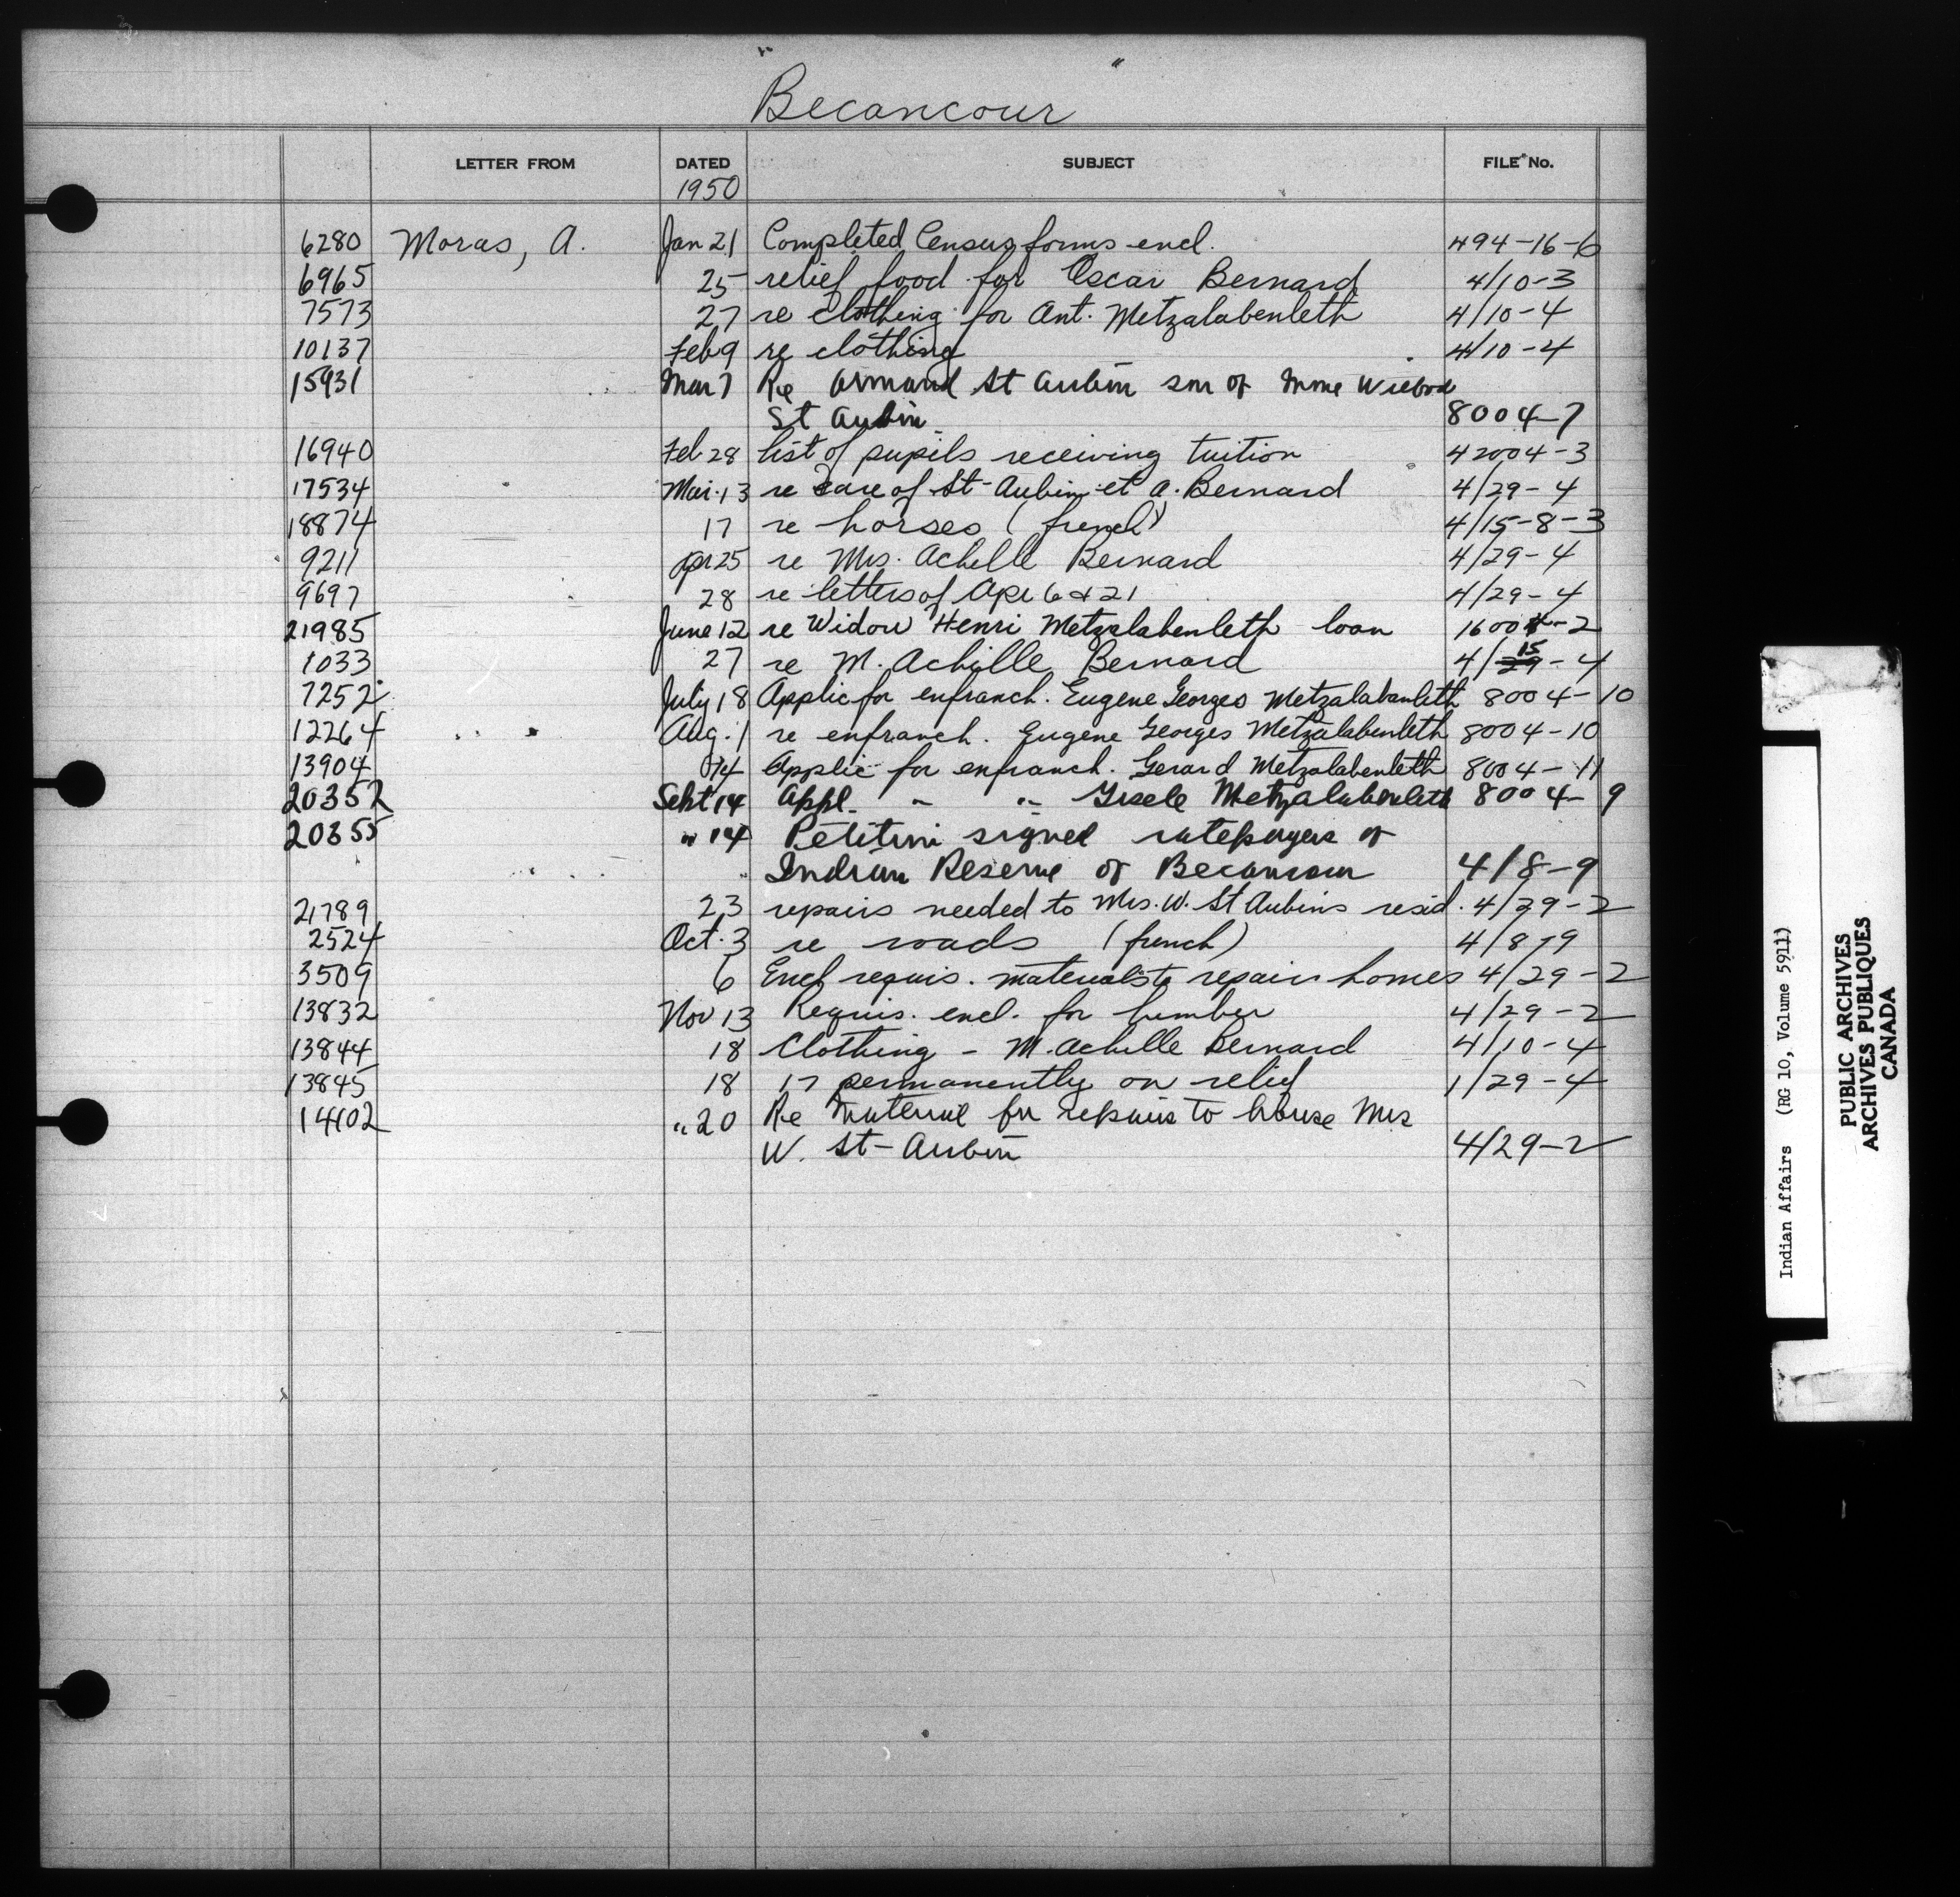 "Becancour"
LETTER FROM DATED SUBJECT FILE No.
1950
6280 Moras, A. Jan 21 Completed Census forms encl. 494-16-6
6965 25 relief food for Oscar Bernard 4/10-3
7573 27 re clothing for Ant. Metzalabenleth 4/10-4
10137 Feb 9 re clothing 4/10-4
15931 Mar 7 Re Armand St Aubin son of Mme
St Aubin 8004-7
16940 Feb 28 list of pupils receiving tuition 42004-3
17534 Mar. 13 re care of St-Aubin et A. Bernard 4/29-4
18874 17 re horses (french) 4/15-8-3
9211 Apr 25 re Mrs. Achille Bernard 4/29-4
9697 28 re letters of Apr 6 & 21 4/29-4
21985 June 12 re Widow Henri Metzalabenleth loan 16004-2
1033 27 re M. Achille Bernard 4/15-4
7252 July 18 Applic for enfranch. Eugene Georges Metzalabanleth 8004-10
12264 Aug. 1 re enfranch. Eugene Georges Metzalabenleth 8004-10
13904 14 Applic for enfranch. Gerard Metzalabenleth 8004-11
20352 Sept 14 Appl. " " Gisele Metzalabenleth 8004-9
20355 " 14 Petition signed ratepayers of
Indian Reserve of Becancour 4/8-9
21789 23 repairs needed to Mrs. W. St Aubins resid. 4/29-2
2524 Oct. 3 re roads (french) 4/8-9
3509 6 Encl requis. materials to repair homes 4/29-2
13832 Nov 13 Requis. encl. for lumber 4/29-2
13844 18 Clothing - M. Achille Bernard 4/10-4
13845 18 17 permanently on relief 1/29-4
14102 " 20 Re material for repairs to house Mrs
W. St-Aubin 4/29-2
Indian Affairs (RG 10, Volume 5911)
PUBLIC ARCHIVES
ARCHIVES PUBLIQUES
CANADA